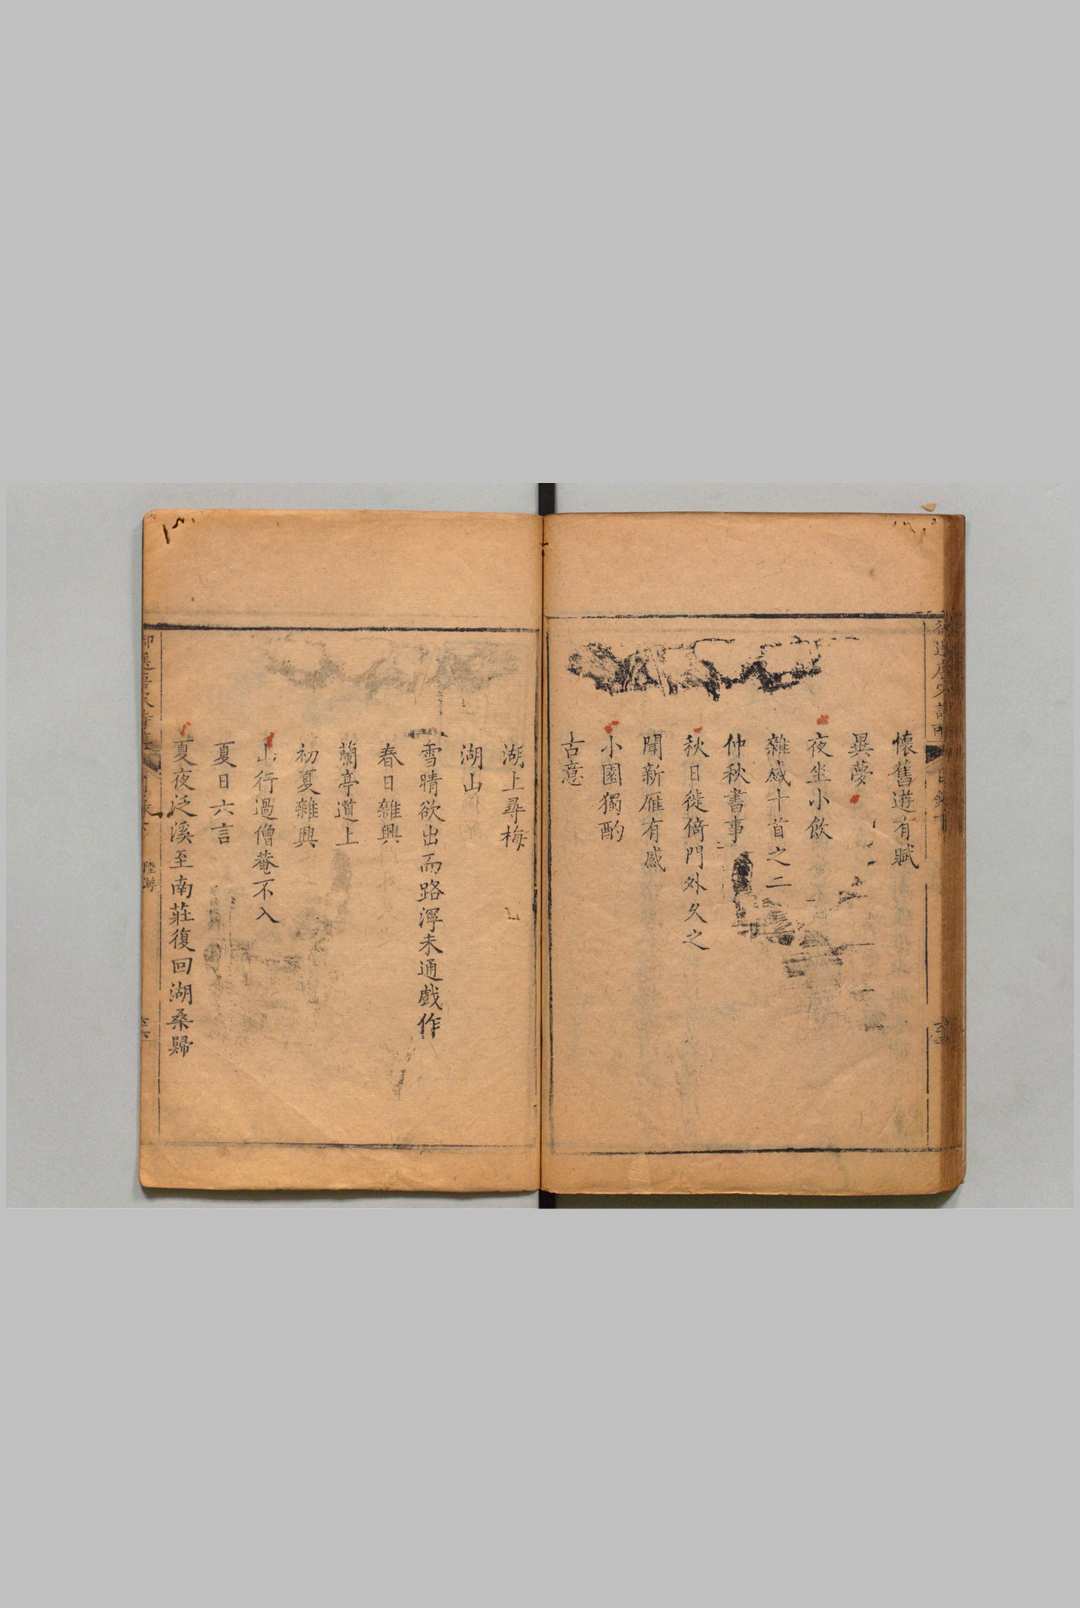 懷舊遊有賦
異夢
夜坐小飲
雜感十首之二
仲秋書事
秋日徙倚門外久之
聞新雁有感
小園獨酌
古意
湖上尋梅
湖山
雪晴欲出而路濘未通戲作
春日雜興
蘭亭道上
初夏雜興
山行過僧菴不入
夏日六言
夏夜泛溪至南莊復回湖桑歸
陸游